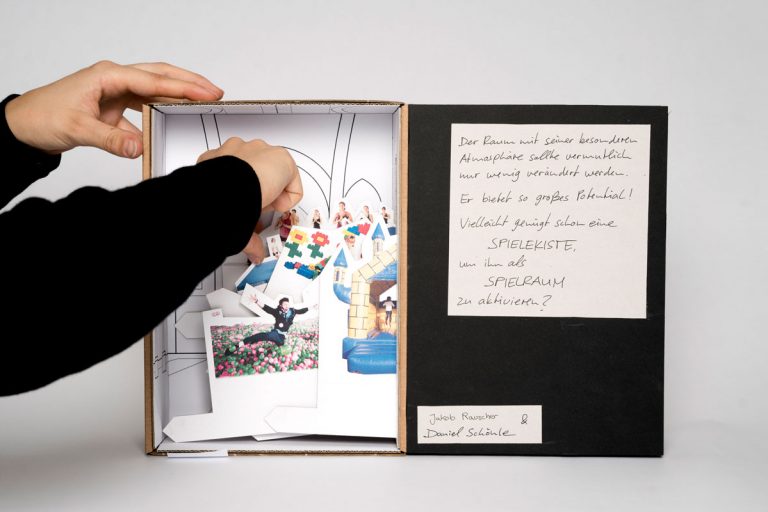 Der Raum mit seiner besonderen
Atmosphäre sollte vermutlich
nur wenig verändert werden.
Er bietet so großes Potential!
Vielleicht genügt schon eine
SPIELEKISTE,
um ihn als
SPIELRAUM
zu aktivieren?
Jakob Rauscher
&
Daniel Schönle